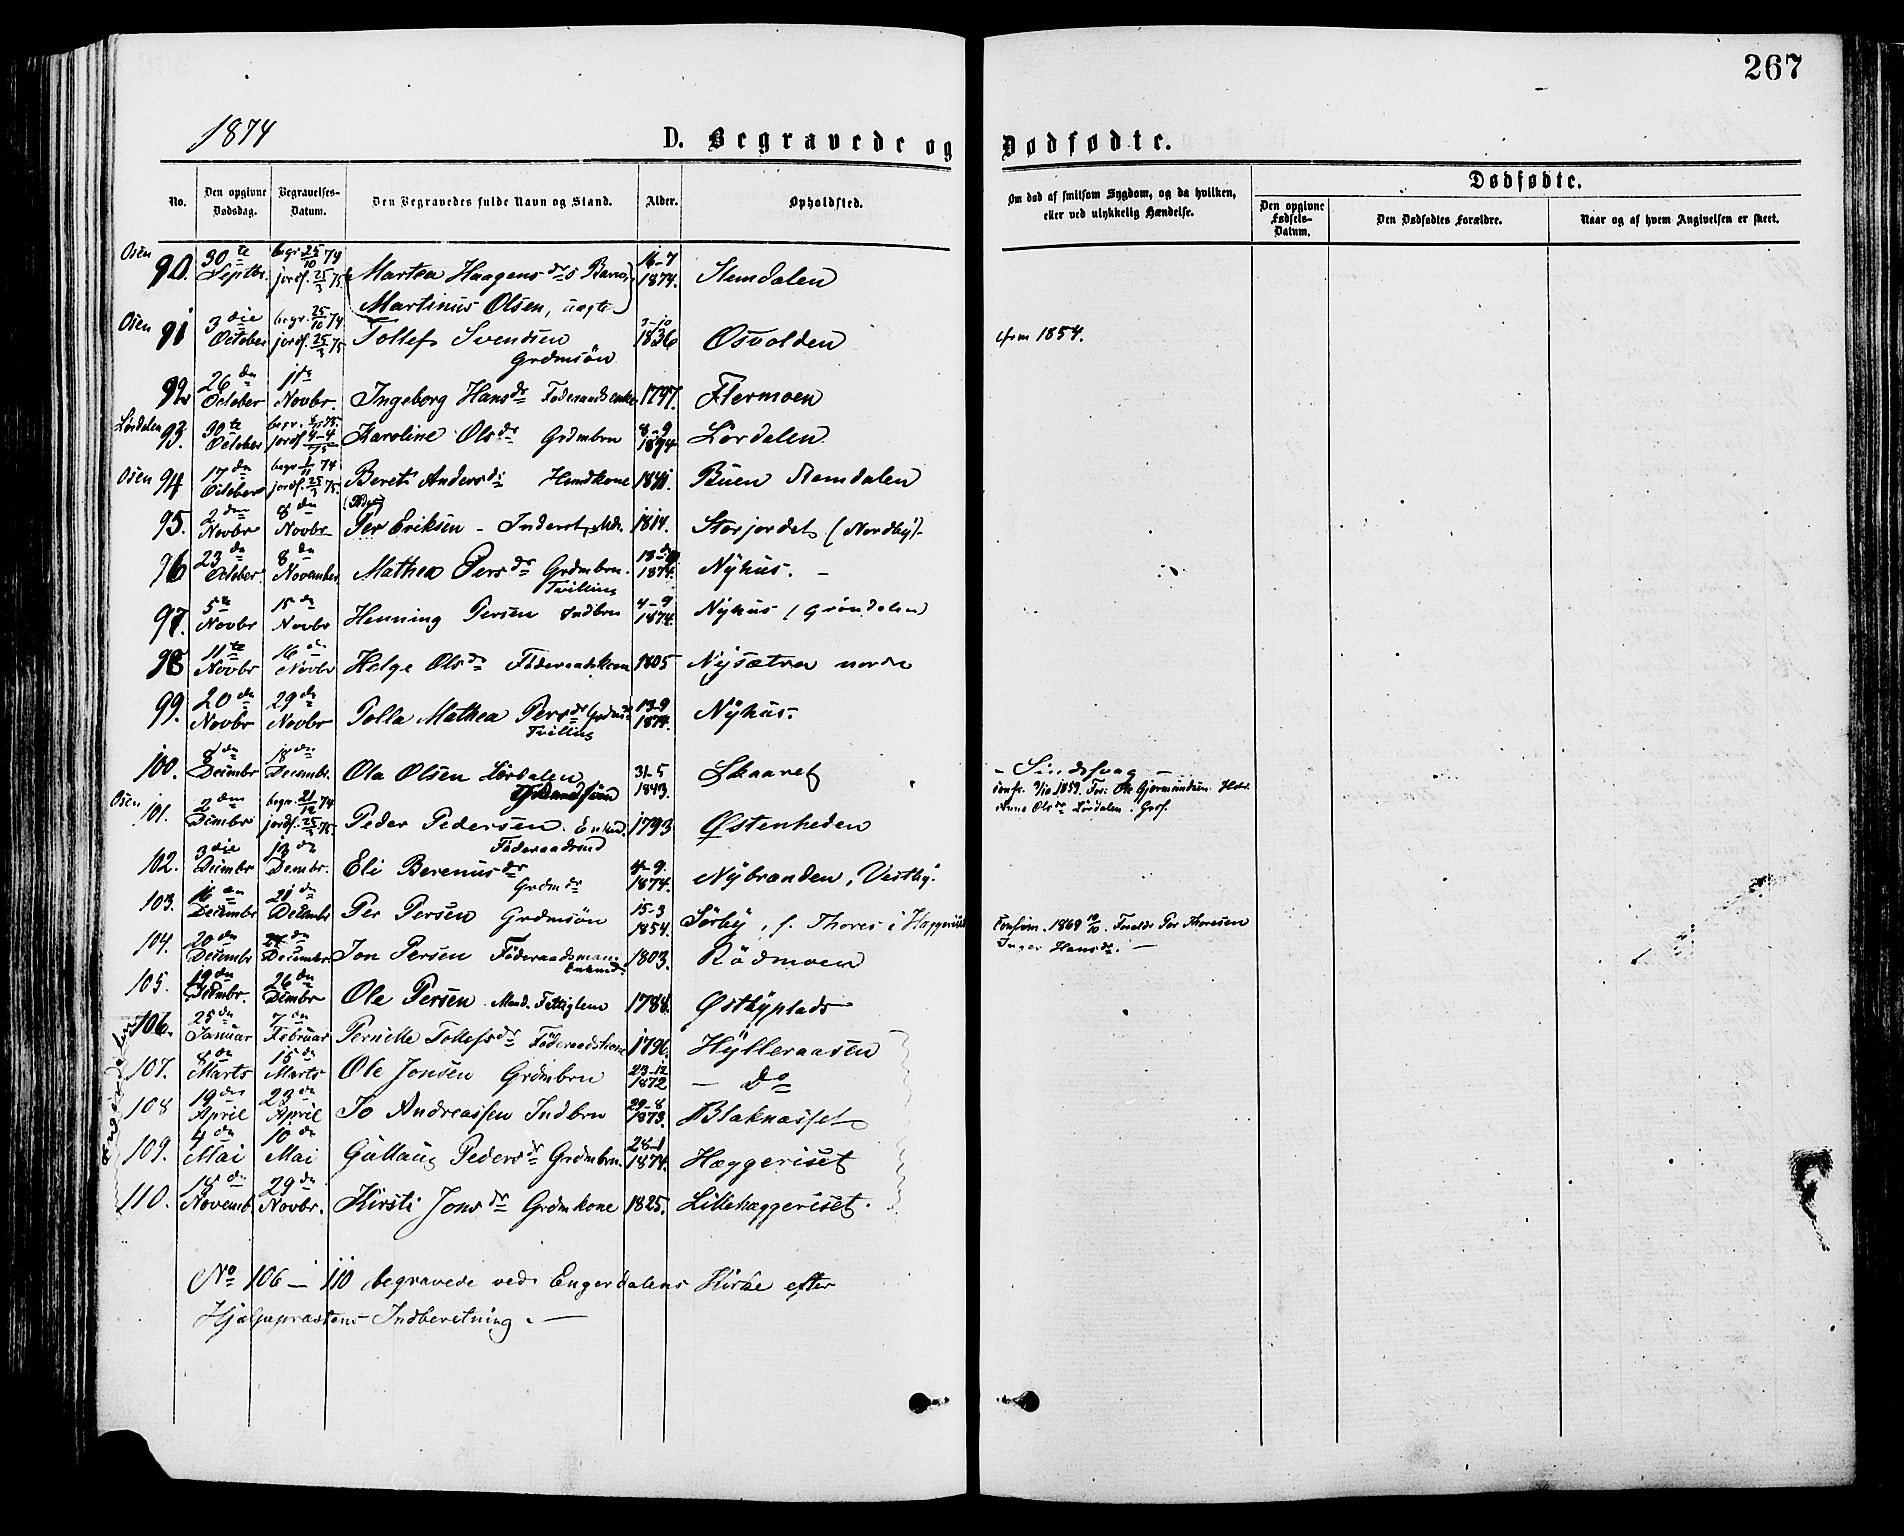 267
1874
D. Begravede og Dødfødte.
No.
Den opgivne Dødsdag.
Begravelses-Datum.
Den Begravedes fulde Navn og Stand.
Alder.
Opholdsted.
Om død af smitsom Sygdom, og da hvilken, eller ved ulykkelig Hændelse.
Dødfødte.
Den opgivne Fødsels-Datum.
Den Dødfødtes Forældre.
Naar og af hvem Angivelsen er skeet.
Osen 90. 30te Septbr. begr. 25/10 74 jordf. 25/3 75. Martea Haagensdr Barn 16-7 1874. Nemdalen
Martinus Olsen, uægte
Osen 91 3die October begr. 25/10 74 jordf. 25/3 75 Tollef Svendsen 3-10 1836 Osvolden cfrm 1854.
Grdmsøn
92 26de October 1ste Novbr. Ingeborg Hansdr Føderaadsenke 1797. Flermoen
Lørdalen 93. 30te October Karoline Olsdr Grdmbrn 8-9 1874 Lørdalen
Osen 94 17de October begr. 1/11 74 jordf. 25/3 75. Beret Andersdr Huusdkone 1841. Buen Nemdalen
95. 2den Novbr 8de Novbr Per Eriksen - Inderst, 1814. Storjordet (Nordby)
96 23de October 8de November Mathea Persdr Grdmbrn. 1874. Nyhus. -
Tvilling
97. 5te Novbr 15de Novbr Henning Persen Indbrn 4-9 1874. Nyhus (Grøndalen)
98 11te Novbr 16de Novbr Helge Olsdr Føderaadskone 1805 Nysætra nordre
99. 20de Novbr 29de Novbr Polla Mathea Persdr 13-9 1874. Nyhus.
Tvilling
100. 8de Decembr Decembr. Ola Olsen Lørdalen 31-5 1843. Skaaret - Sindssvag -
conf. 2/10 1859. For: Ole Gjermundsen
Anne Olsdr Lørdalen. Grdf.
Osen 101. 2den Dcmbr begr. 21/12 74 jordf. 25/3 75. Peder Pedersen. Enkem. 1793 Østenheden
Føderaadsmd
102. 3die Decembr 13de Dcembr. Eli Berenusdr 4-9. 1874. Nybranden, Vestby.
Grdmdr
103. 16de Decembr 21de Decembr Per Persen Grdmsøn 15-3 1854. Sørby, f. Thores i Hæggeriset Confirm. 1869 10/10. Forældr Per Thoresen
Inger Hansdr. -
104. 20de Decembr Decembr Jon Persen Føderaadsmand 1803. Rödmoen
Enkemd.
105. 19de Dcembr. 26de Dcmbr Ole Persen. Mand. Fattiglem 1788. Østbyplads
106. 25de Januar 7de Februar Pernille Tollefsdr Føderaadskone 1796. Hylleraasen
107. 8de Marts 15de Marts Ole Jonsen Grdmbrn 23-12 1872 - Do
108 19de April 23de April Jo Andreassen Indbrn 29-8 1873. Blaknasset
109. 4de Mai 10de Mai Gullaug Pedersdr Grdmbrn. 28-1 1874. Hæggeriset
110. Novemb 29de Novbr. Kirsti Jonsdr Grdmkone 1825. Lillehæggeriset.
No 106 - 110 begravede ved Engerdalens Kirke efter
Hjælpepræstens Indberetning. -